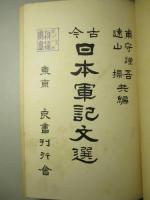 甫守謹吾
遠山操
共編
古今
日本軍記文選
東京 良書刊行會